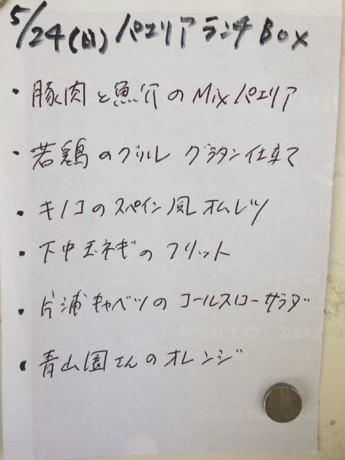 5/24(日) パエリアランチBOX
・豚肉と魚介のMixパエリア
・若鶏のグリル グラタン仕立て
・キノコのスペイン風オムレツ
・下中玉ネギのフリット
・片浦キャベツのコールスローサラダ
・青山園さんのオレンジ